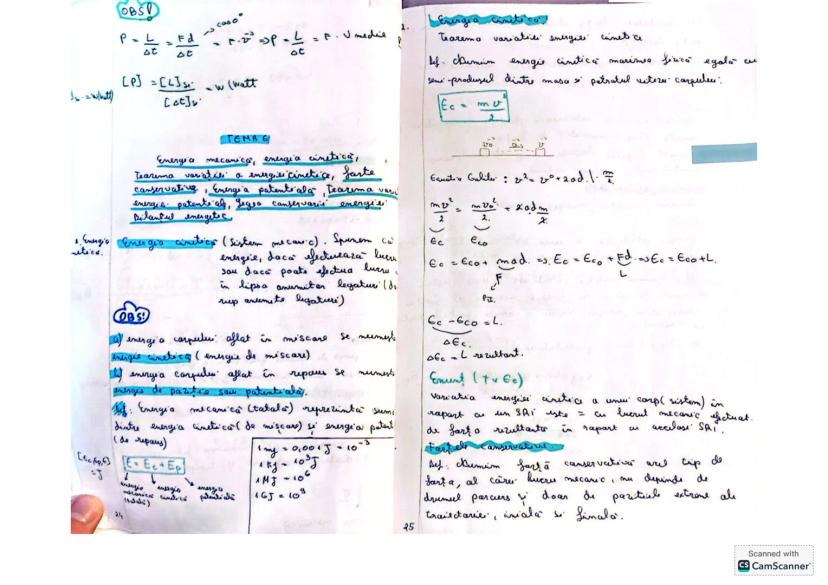 OBS!
P = L/Δt = Fd/Δt = F · v ⇒ P = L/Δt = F · v medie
cos 0°
[P] = [L]SI / [Δt]SI = W (Watt
TEMA 6
Energia mecanică, energia cinetică,
Teorema variației a energiei cinetice, forțe
conservative, Energia potențială, Teorema vari
energia potențial, legea conservării energiei
Bilanțul energetic
Energia cinetică (sistem mecanic). Spunem că
energie, dacă efectuează lucru
sau dacă poate efectua lucru
în lipsa anumitor legături (
rup anumite legături)
OBS!
a) energia corpului aflat în mișcare se numeșt
energie cinetică (energie de mișcare)
b) energia corpului aflat în repaus se numeșt
energie de poziție sau potențială.
Def: Energia mecanică (totală) reprezintă suma
dintre energia cinetică (de mișcare) și energia potenț
(de repaus)
= J
E = Ec + Ep
energie mecanică (totală)
energia cinetică
energia potențială
1 mJ = 0,001 J = 10⁻³
1 KJ = 10³ J
1 MJ = 10⁶
1 GJ = 10⁹
24
2.
Energia cinetică.
Teorema variației energiei cinetice.
Def. Numim energie cinetică mărimea fizică egală cu
semi-produsul dintre masa și pătratul vitezei corpului.
Ec = mv²/2
Ecuația Galilei : v² = v0² + 2ad. | · m/2
mv²/2 = mv0²/2 + 2ad m/2
Ec Eco
Ec = Eco + mad. ⇒ Ec = Eco + Fd ⇒ Ec = Eco + L.
F L
PII
Ec - Eco = L.
ΔEc.
ΔEc = L rezultant.
Enunț (TvEc)
Variația energiei cinetice a unui corp (sistem) în
raport cu un SRI este = cu lucrul mecanic efectuat
de forța rezultantă în raport cu același SRI.
Forțele conservative
Def. Numim forță conservativă acel tip de
forță, al cărui lucru mecanic, nu depinde de
drumul parcurs și doar de pozițiile extreme ale
traiectoriei, inițială și finală.
25
Scanned with
CS CamScanner